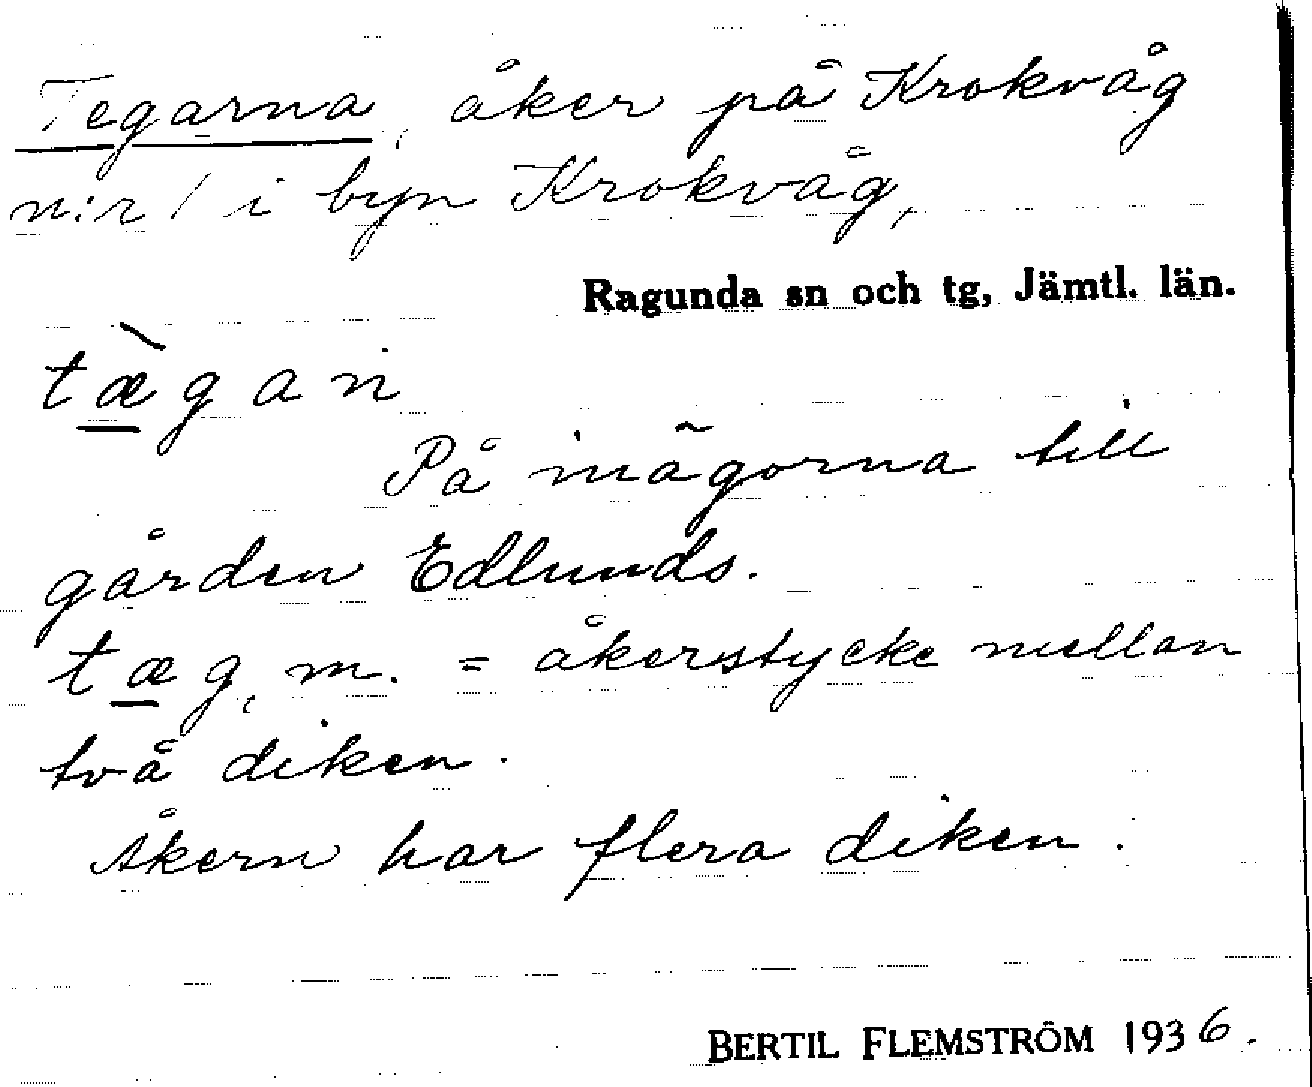 Tegarna, åker på Krokvåg
n:r 1 i byn Krokvåg,
Ragunda sn och tg, Jämtl. län.
tæ̀gan
På inägorna till
gården Edlunds.
tæg, m. = åkerstycke mellan
två diken.
Åkern har flera diken.
BERTIL FLEMSTRÖM 1936.